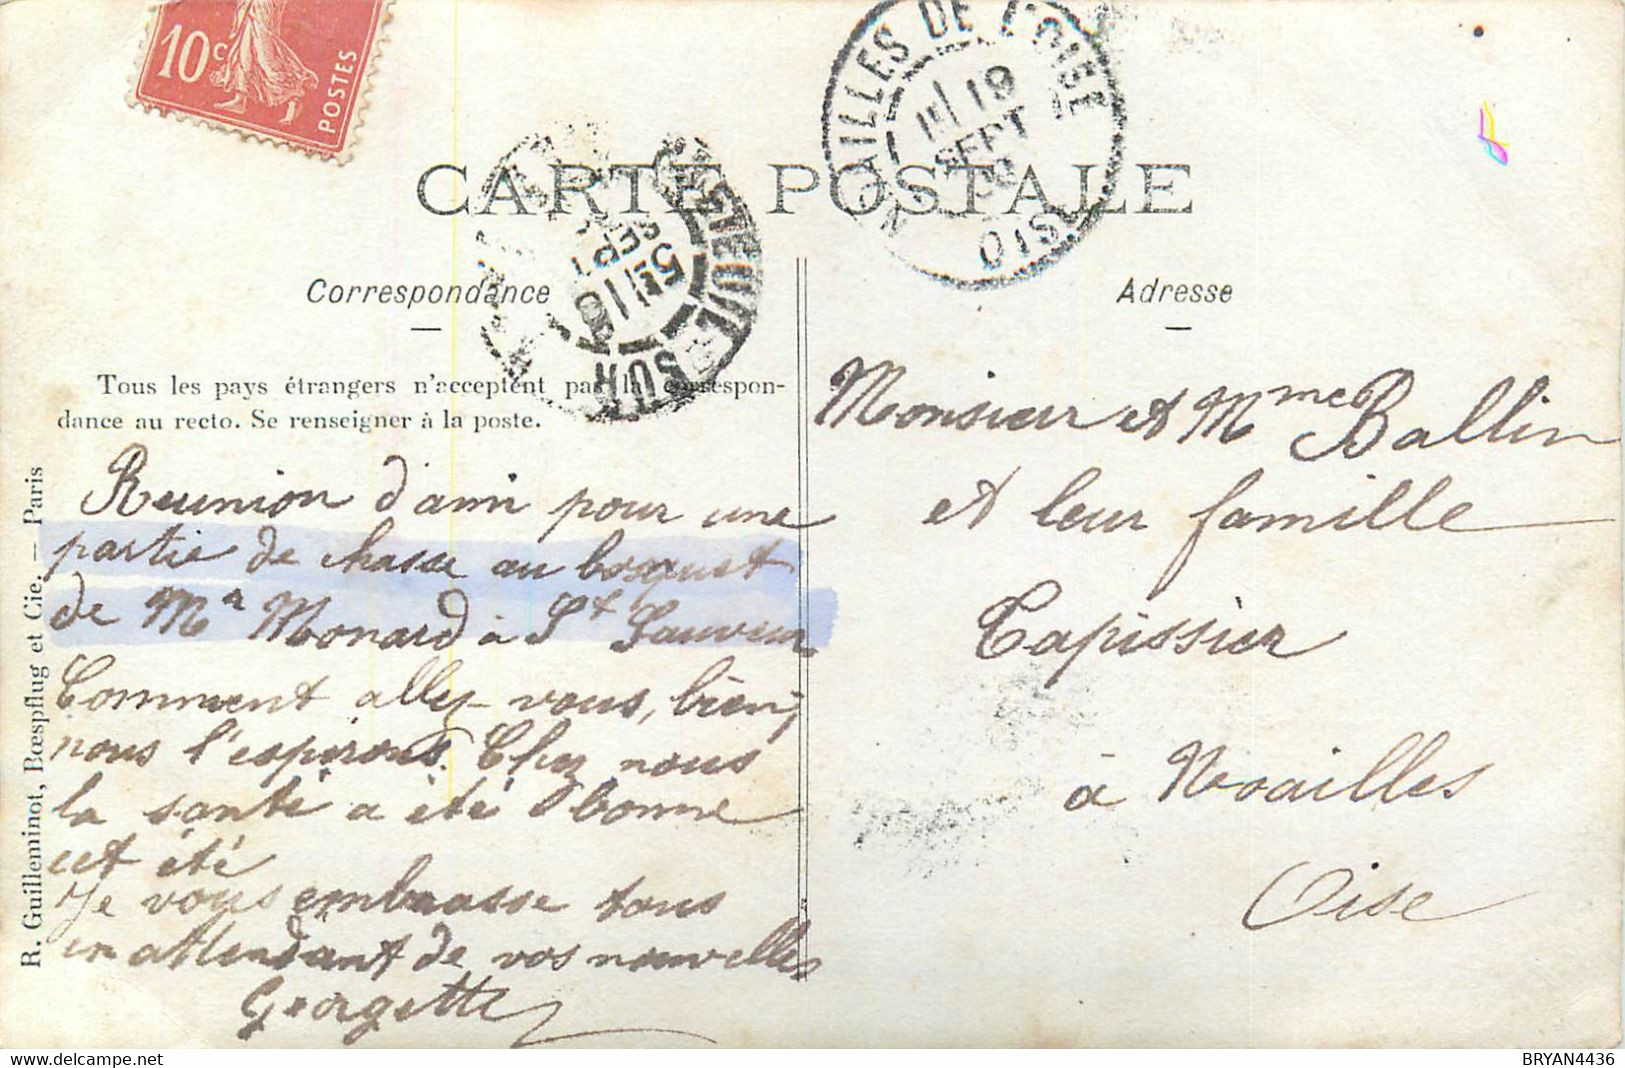 10c
POSTES
NOAILLES DE L'OISE
19
SEPT
OISE
SUR
18
SEPT
CARTE POSTALE
Correspondance
Adresse
Tous les pays étrangers n'acceptent pas la correspon-
dance au recto. Se renseigner à la poste.
R. Guilleminot, Bœspflug et Cie. — Paris
Reunion d'ami pour une
partie de chasse au bosquet
de Mr Monard à St Sauveur
Comment allez-vous, bien,
nous l'espérons. Chez nous
la santé a été bonne
cet été
Je vous embrasse tous
en attendant de vos nouvelles
Georgette
Monsieur et Mme Ballin
et leur famille
Tapissier
à Noailles
Oise
BRYAN4436
www.delcampe.net